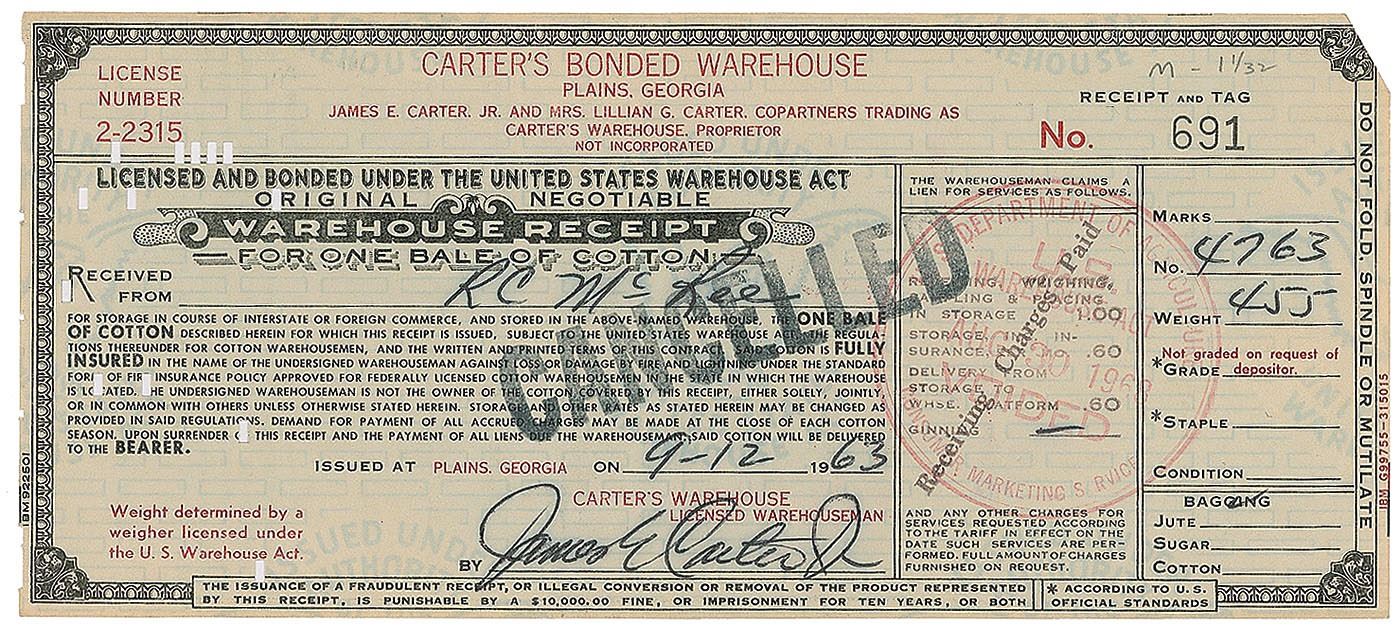 LICENSE
NUMBER
2-2315
CARTER'S BONDED WAREHOUSE
PLAINS, GEORGIA
JAMES E. CARTER, JR. AND MRS. LILLIAN G. CARTER, COPARTNERS TRADING AS
CARTER'S WAREHOUSE, PROPRIETOR
NOT INCORPORATED
M - 1 1/32
RECEIPT AND TAG
No. 691
LICENSED AND BONDED UNDER THE UNITED STATES WAREHOUSE ACT
ORIGINAL NEGOTIABLE
WAREHOUSE RECEIPT
FOR ONE BALE OF COTTON
RECEIVED
FROM RC McKee
FOR STORAGE IN COURSE OF INTERSTATE OR FOREIGN COMMERCE, AND STORED IN THE ABOVE-NAMED WAREHOUSE, THE ONE BALE
OF COTTON DESCRIBED HEREIN FOR WHICH THIS RECEIPT IS ISSUED, SUBJECT TO THE UNITED STATES WAREHOUSE ACT, THE REGULA-
TIONS THEREUNDER FOR COTTON WAREHOUSEMEN, AND THE WRITTEN AND PRINTED TERMS OF THIS CONTRACT. SAID COTTON IS FULLY
INSURED IN THE NAME OF THE UNDERSIGNED WAREHOUSEMAN AGAINST LOSS OR DAMAGE BY FIRE AND LIGHTNING UNDER THE STANDARD
FORM OF FIRE INSURANCE POLICY APPROVED FOR FEDERALLY LICENSED COTTON WAREHOUSEMEN IN THE STATE IN WHICH THE WAREHOUSE
IS LOCATED. THE UNDERSIGNED WAREHOUSEMAN IS NOT THE OWNER OF THE COTTON COVERED BY THIS RECEIPT, EITHER SOLELY, JOINTLY,
OR IN COMMON WITH OTHERS UNLESS OTHERWISE STATED HEREIN. STORAGE AND OTHER RATES AS STATED HEREIN MAY BE CHANGED AS
PROVIDED IN SAID REGULATIONS. DEMAND FOR PAYMENT OF ALL ACCRUED CHARGES MAY BE MADE AT THE CLOSE OF EACH COTTON
SEASON. UPON SURRENDER OF THIS RECEIPT AND THE PAYMENT OF ALL LIENS DUE THE WAREHOUSEMAN, SAID COTTON WILL BE DELIVERED
TO THE BEARER.
CANCELLED
ISSUED AT PLAINS, GEORGIA ON 9-12 1963
Weight determined by a
weigher licensed under
the U. S. Warehouse Act.
CARTER'S WAREHOUSE
LICENSED WAREHOUSEMAN
BY James E Carter Jr
THE WAREHOUSEMAN CLAIMS A
LIEN FOR SERVICES AS FOLLOWS.
RECEIVING, WEIGHING,
SAMPLING & PLACING
IN STORAGE 1.00
STORAGE, IN-
SURANCE, MO .60
DELIVERY FROM
STORAGE TO
WHSE. PLATFORM .60
GINNING
Receiving Charges Paid
U.S. DEPARTMENT OF AGRICULTURE
WAREHOUSE ACT
AUG 30 1963
CONSUMER MARKETING SERVICE
AND ANY OTHER CHARGES FOR
SERVICES REQUESTED ACCORDING
TO THE TARIFF IN EFFECT ON THE
DATE SUCH SERVICES ARE PER-
FORMED. FULL AMOUNT OF CHARGES
FURNISHED ON REQUEST.
MARKS
No. 4763
WEIGHT 455
Not graded on request of
*GRADE depositor.
*STAPLE
CONDITION
BAGGING
JUTE
SUGAR
COTTON
THE ISSUANCE OF A FRAUDULENT RECEIPT, OR ILLEGAL CONVERSION OR REMOVAL OF THE PRODUCT REPRESENTED
BY THIS RECEIPT, IS PUNISHABLE BY A $10,000.00 FINE, OR IMPRISONMENT FOR TEN YEARS, OR BOTH
* ACCORDING TO U.S.
OFFICIAL STANDARDS
DO NOT FOLD, SPINDLE OR MUTILATE
IBM G99755-315015
IBM 922501